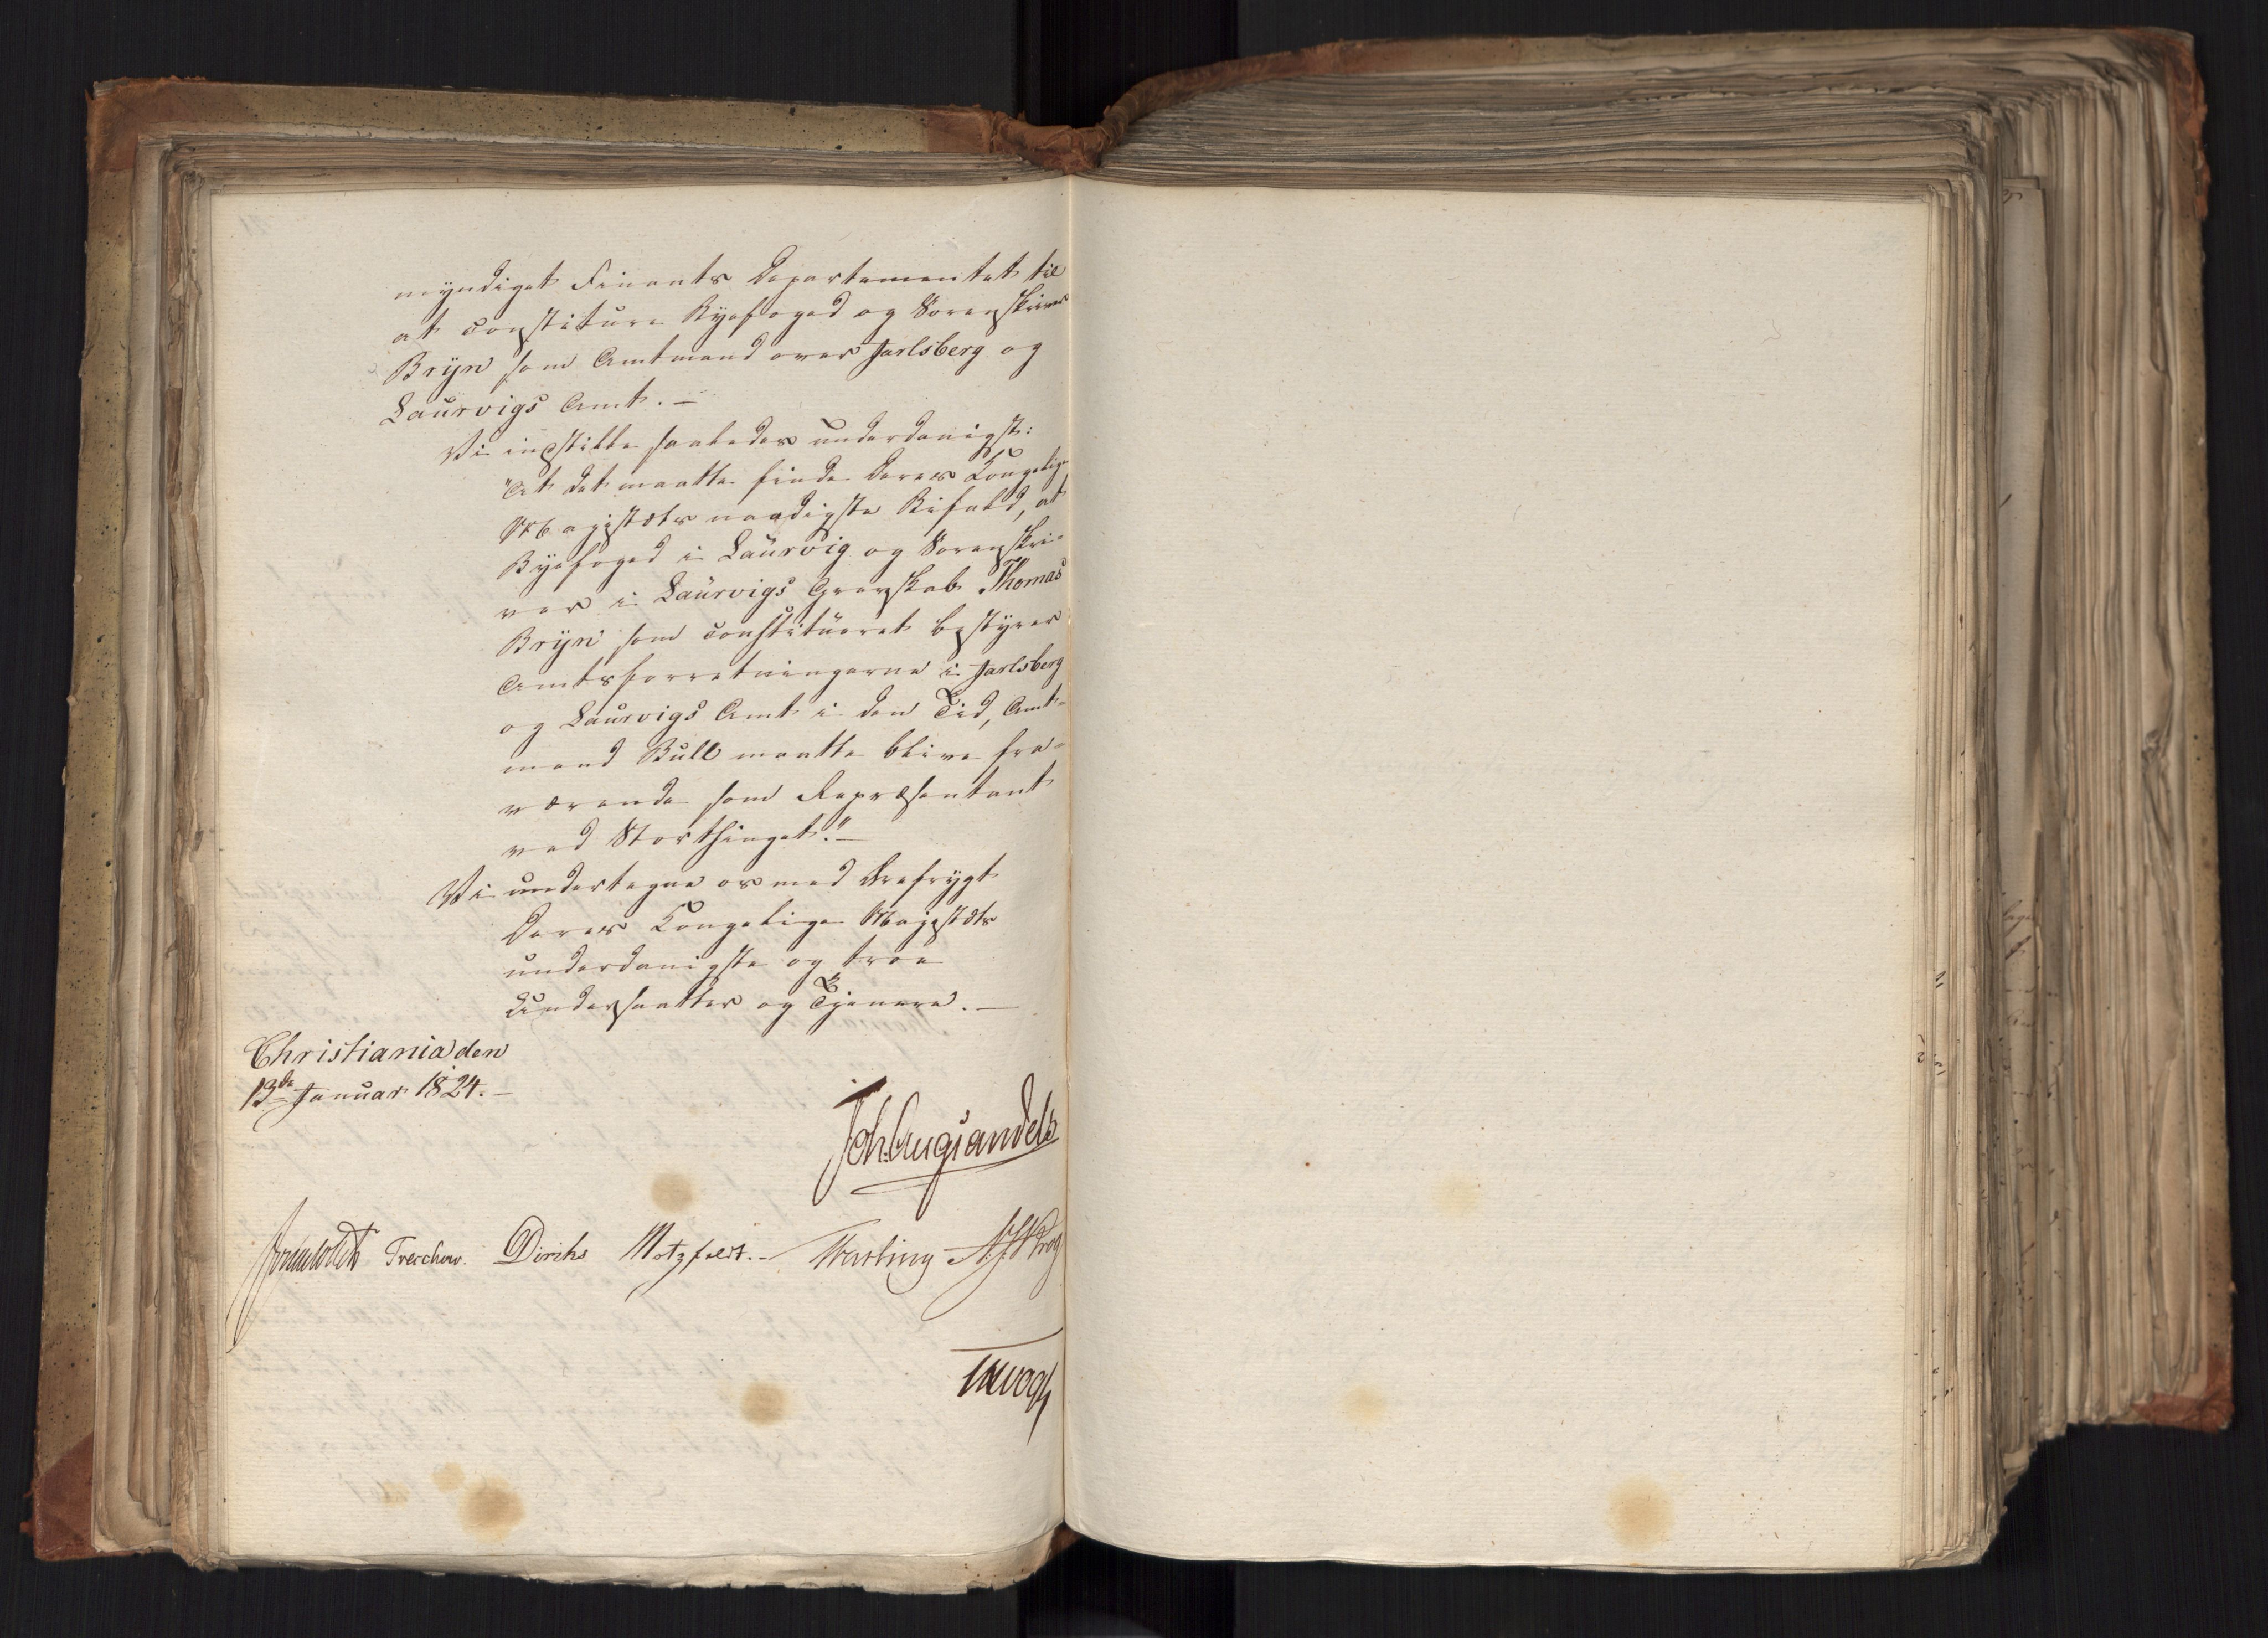 myndiget Finants Departementet til
at constituere Byefoged og Sorenskriver
Bryn som Amtmand over Jarlsberg og
Laurvigs Amt. —
Vi indstille saaledes underdanigst:
"At det maatte finde Deres Kongelige
Majestæts naadigste Bifald, at
Byefoged i Laurvig og Sorenskri-
ver i Laurvigs Grevskab Thomas
Bryn som constitueret bestyrer
Amtsforretningerne i Jarlsberg
og Laurvigs Amt i den Tid, Amt-
mand Bull maatte blive fra-
værende som Repræsentant
ved Storthinget." —
Vi undertegne os med Ærefrygt
Deres Kongelige Majestæts
underdanigste og troe
Undersaatter og Tjenere. —
Christiania den
13de Januar 1824. —
Joh: Aug: Sandels
Sommerhielm Treschow. Diriks Motzfeldt. — Fasting N: J: Krog
Vogt